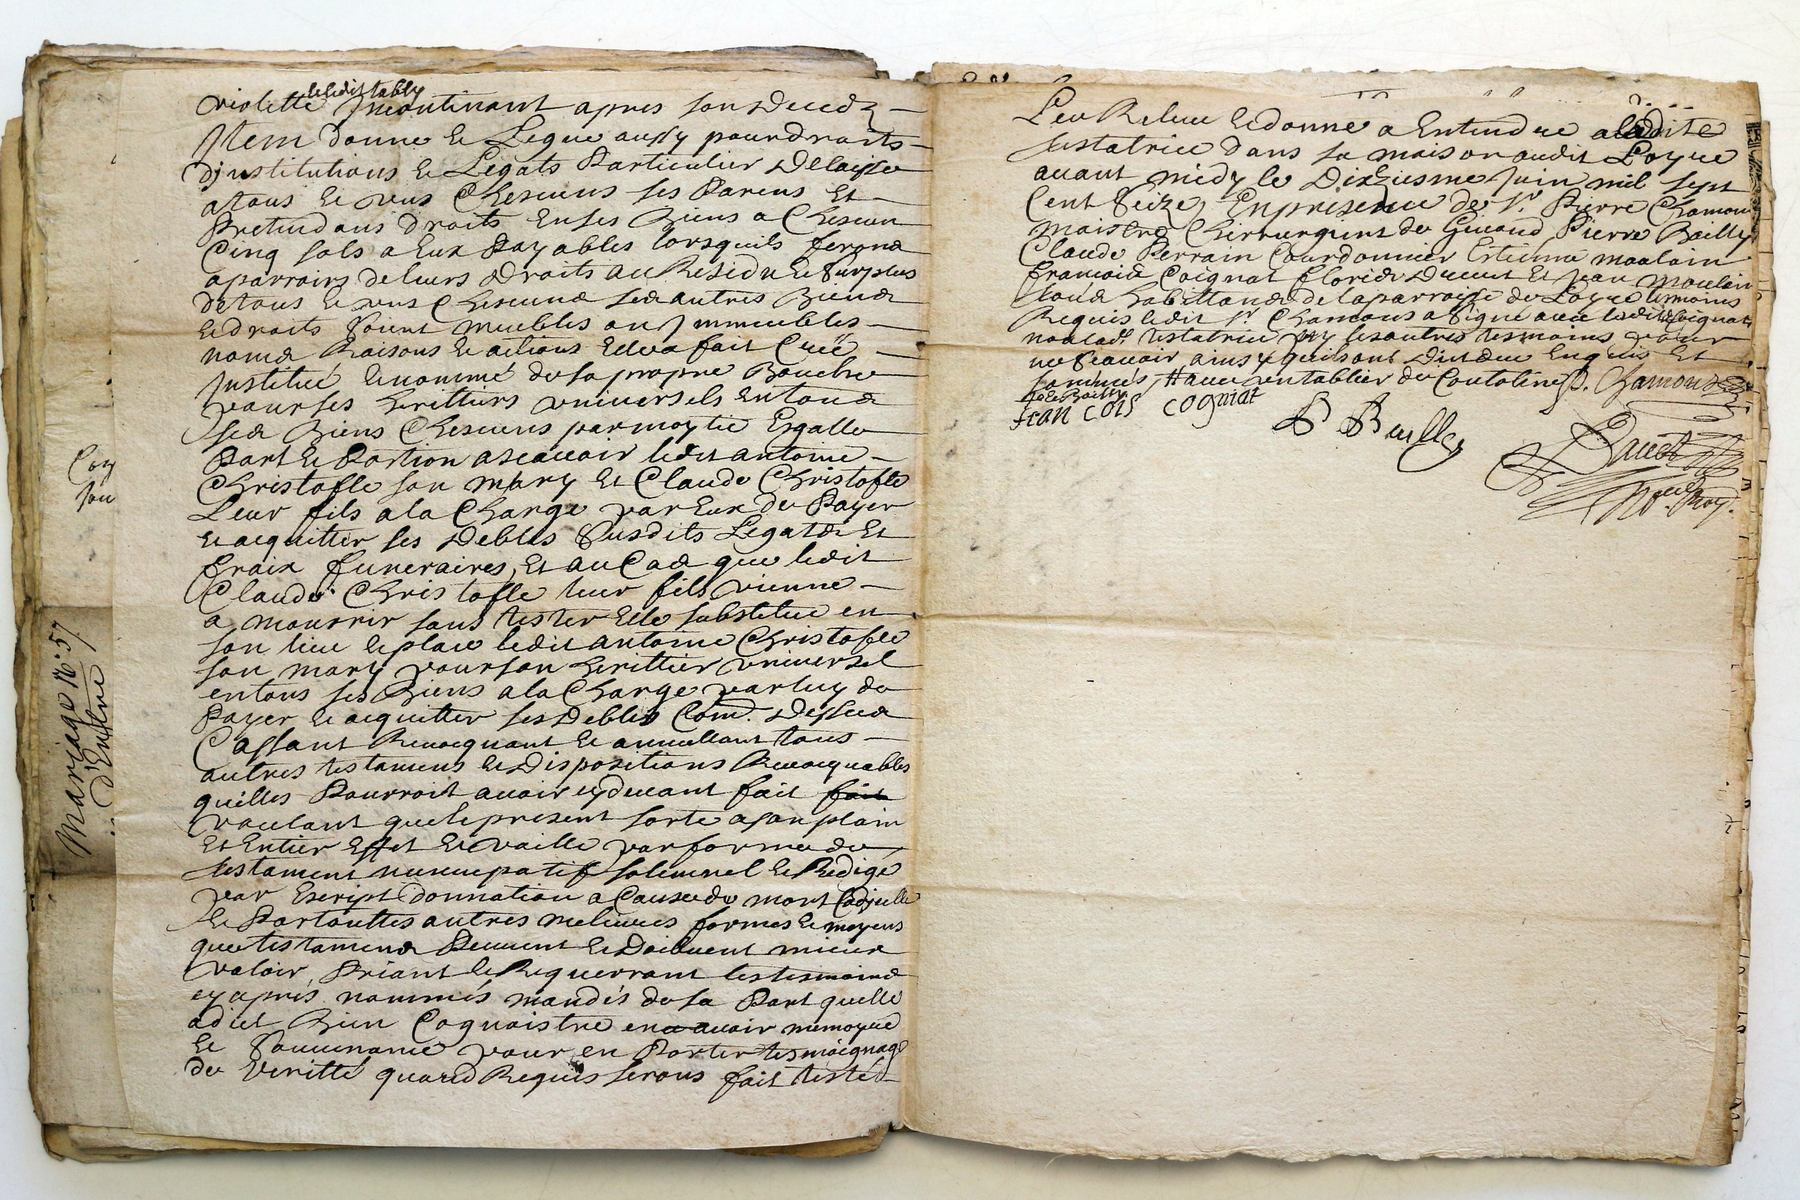 ledit tably
violette Incontinant apres son deceds
Item donne et Legue aussy pour droits
d'institutions et Legats Particulier Delaisse
a tous et uns Chescuns ses Parens Et
Pretendans droits En ses Biens a Chescun
Cinq sols a Eux Payables lorsquils feront
aparroir de leurs Droits au Residu et surplus
de tous et uns Chescuns ses autres Biens
et droits soient meubles ou Immeubles
noms Raisons et actions Elle a fait Créé
Institué et nommé de sa propre Bouche
pour ses herittiers universels en tous
ses Biens Chescuns par moytie Esgalle
Part et Portion a scavoir ledit antoine
Christofle son mary et Claude Christofle
Leur fils a la Charge par Eux de Payer
et acquitter ses Debtes susdits Legats Et
fraix funeraires, Et au Cas que ledit
Claude Christofle leur fils vienne
a mourrir sans tester Elle substitue en
son lieu et place ledit antoine Christofle
son mary pour son herittier universel
en tous ses Biens a la Charge par luy de
Payer et acquitter ses Debtes Com.e Dessus
Cassant Revocquant et annullant tous
autres testamens et Dispositions Revocquables
quelles Pourroit avoir cy devant fait fait
voulant que le present sorte a son plain
Et Entier Effet Et vaille par forme de
testament nuncupatif solennel et Redigé
par Escript donnation a Cause de mort Codicille
et Par touttes autres melieures formes et moyens
que testamens Peuvent et Doibvent mieux
valoir, Priant et Requerrant les tesmoins
cy après nommés mandés de sa Part quelle
a dict Bien Cognoistre en avoir memoyre
et souvenance pour en Porter tesmoignage
de Veritté quand Requis seront fait
Leu Releu et donné a Entendre a ladite
testatrice dans sa maison audit Loyse
avant midy le Dixiesme Juin mil sept
Cent Seize, En presence de Sr. Pierre Chamon
maistre Chirrurgient de Pierre Bailly
Claude Perrain Courdonnier Estienne
francois Coignat et Jean moulin
tous habittans de la parroisse de Loyse tesmoins
Requis ledit Sr. Chamons a signé avec ledit Coignat
non lad. testatrice ny les autres tesmoins pour
ne scavoir ainsy quils ont dict de ce Enquis Et
sommés
fran cois cognat
P Bailly
P. Chamons
Not. Roy.
Mariage N° 57
d'Entre